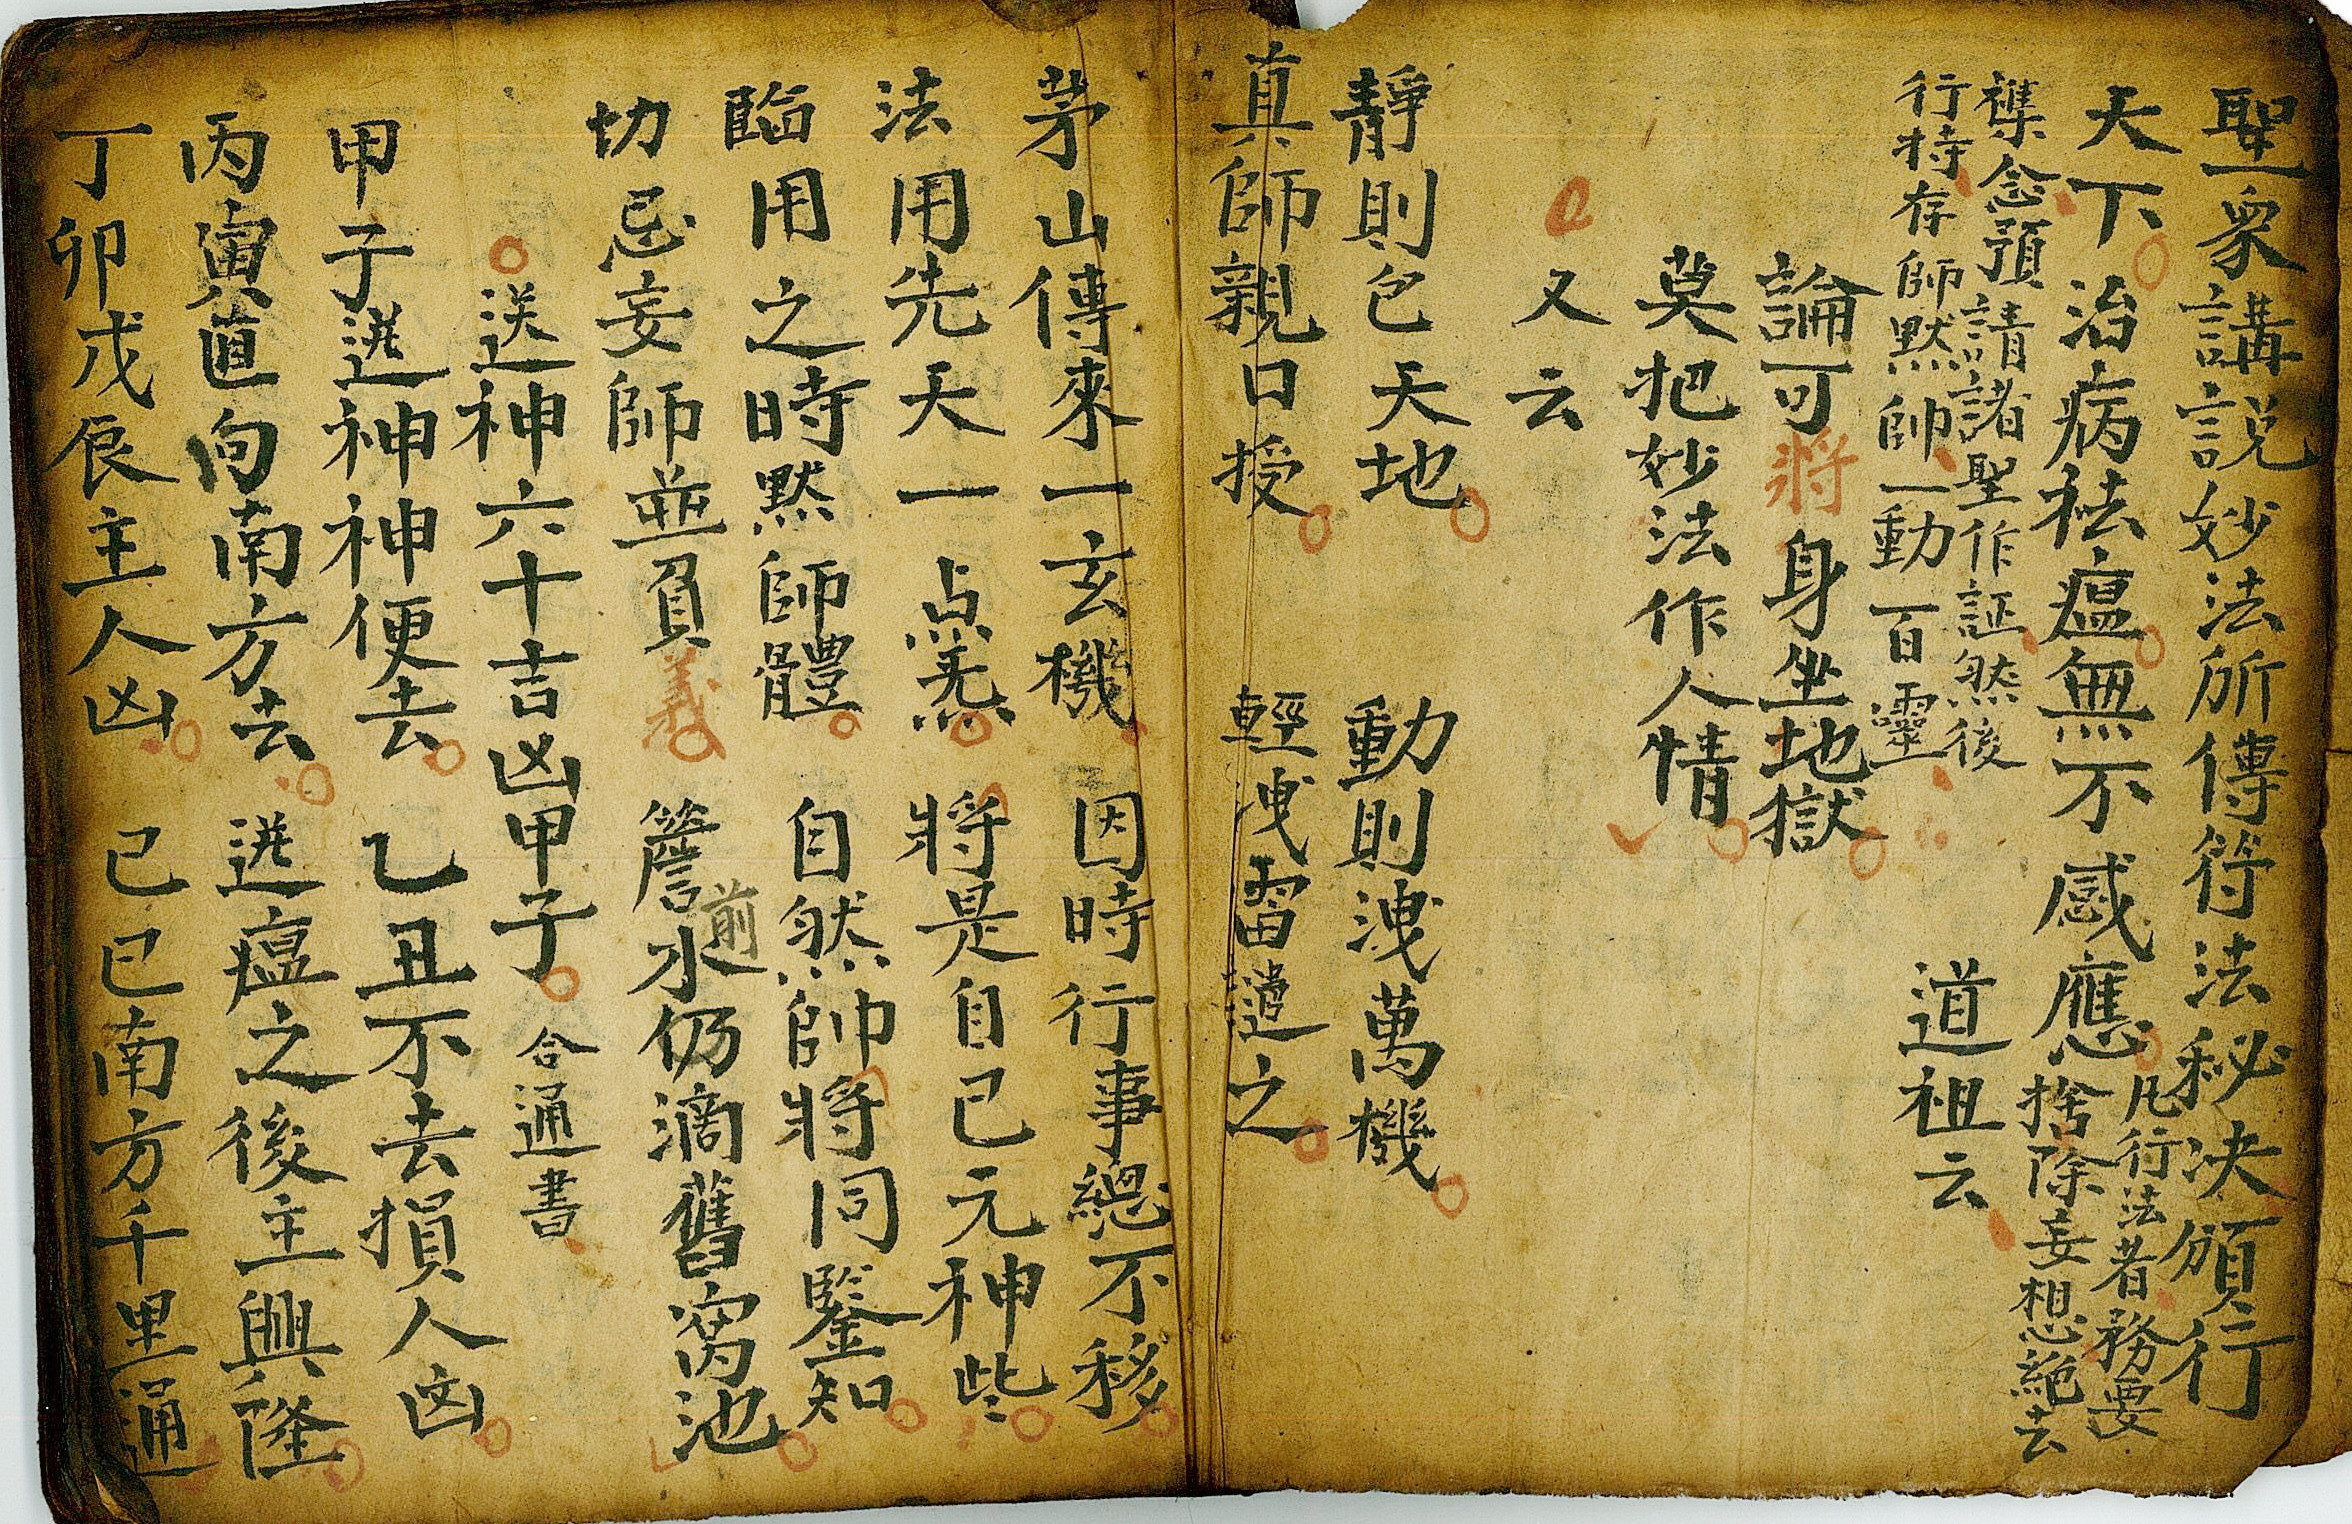 聖衆講説妙法所傳符法秘决頒行
天下治病祛瘟無不感應凡行法者務要
捨除妄想絶去
襍念預請諸聖作証然後
行持存師默帥一動百靈
道祖云
論可將身坐地獄
莫把妙法作人情
又云
靜則包天地動則洩萬機
真師親口授輕洩雷譴之
茅山傳來一玄機因時行事總不移
法用先天一点炁將是自己元神些
臨用之時默師體自然帥將同鑒知
切忌妄師並負義簷前水仍滴舊窩池
送神六十吉凶甲子合通書
甲子送神神便去乙丑不去損人凶
丙寅直向南方去送瘟之後主興隆
丁卯戊辰主人凶己巳南方千里通